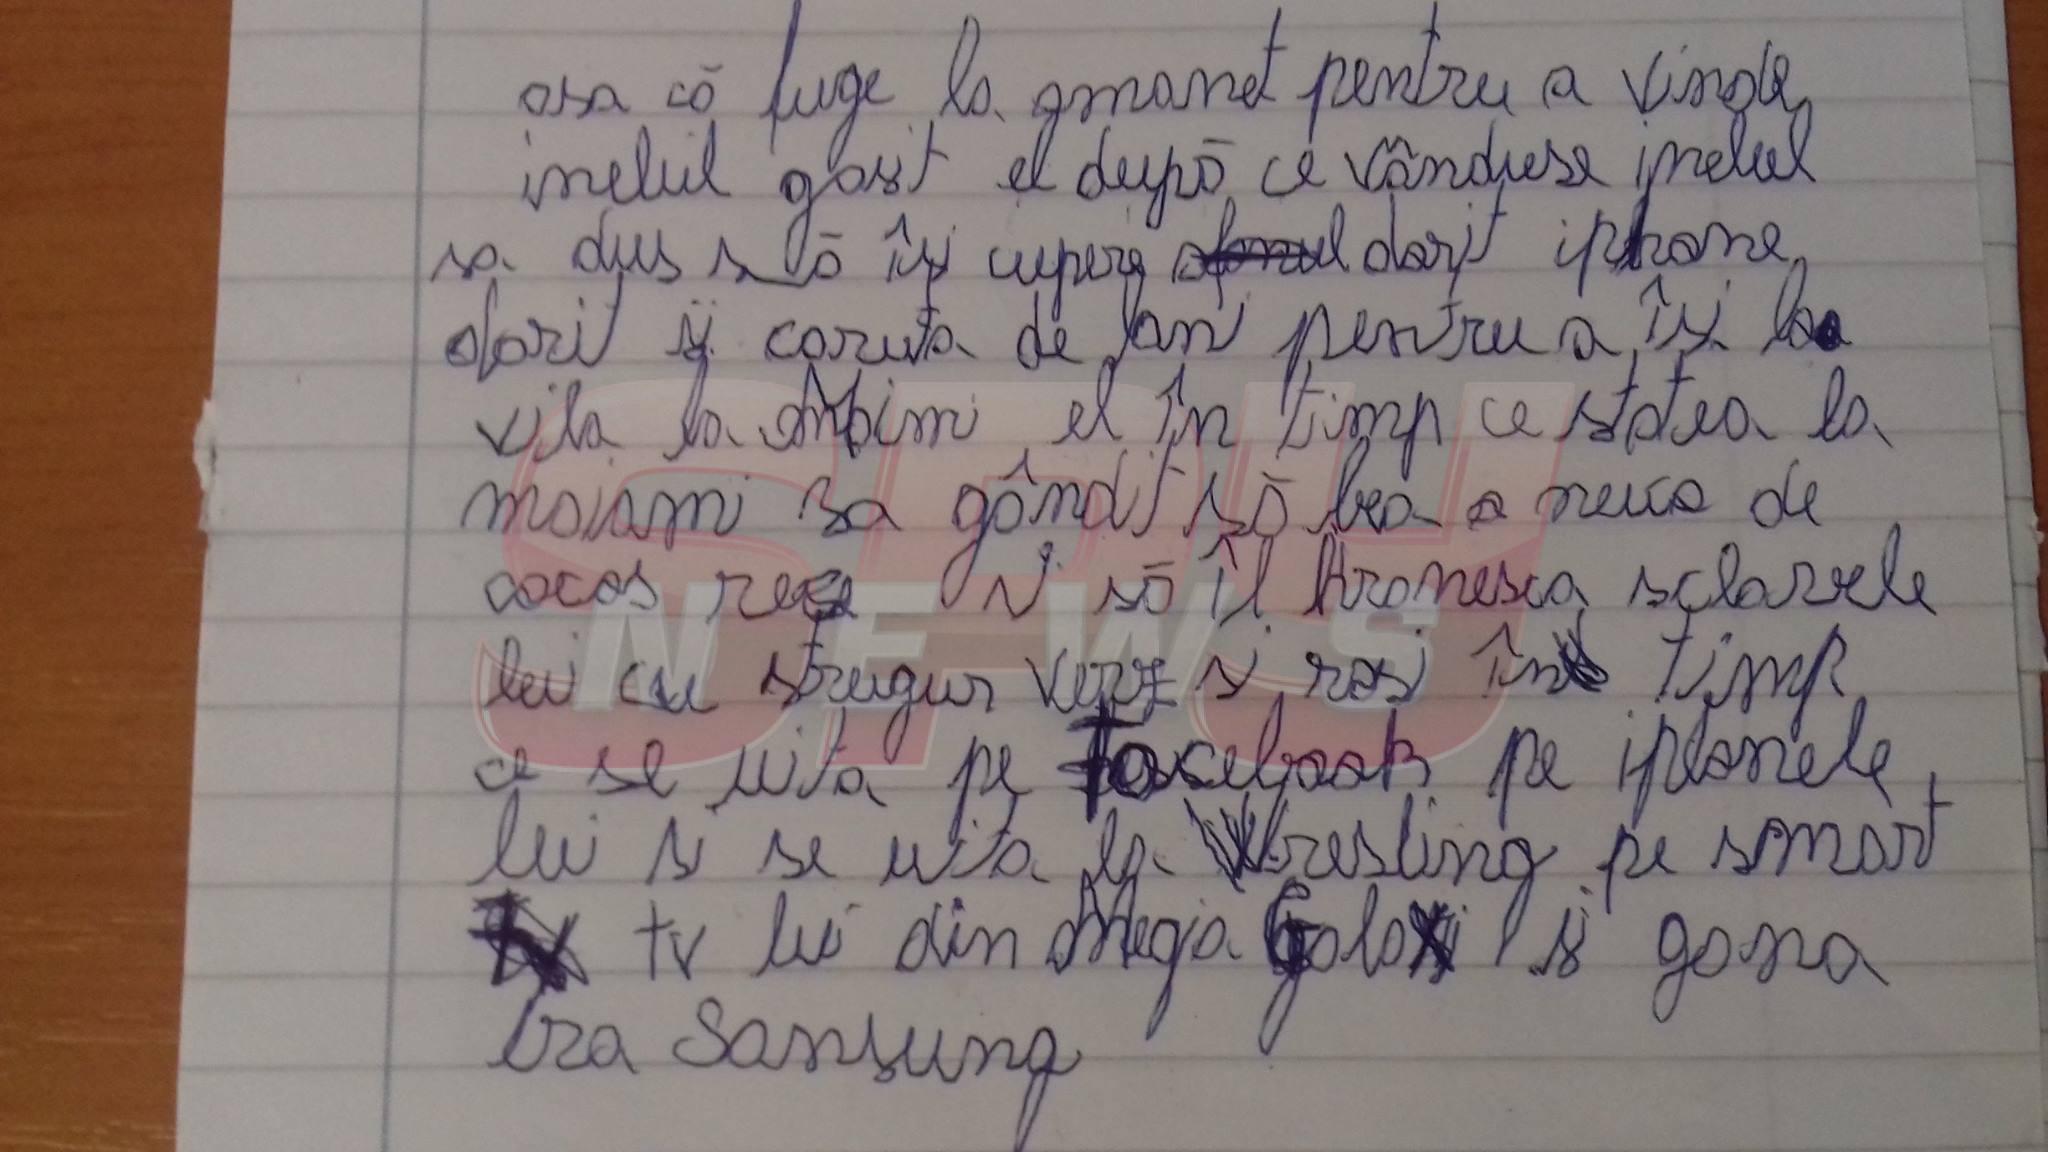 asa că fuge la amanet pentru a vinde
inelul gasit el după ce vânduse inelul
sa dus să își cupere dorit iphone
dorit și caruta de lani pentru a își la
vila la maimi el în timp ce stătea la
moiami sa gândit să bea o neuca de
cocos rece și să îl hranesca sclavele
lui cu strugur verz si rosi în timp
ce se uita pe facebook pe iphonele
lui si se uita la Wresling pe smart
tv lui din Mega Galaxi si gona
Era Sansung
SPY
NEWS